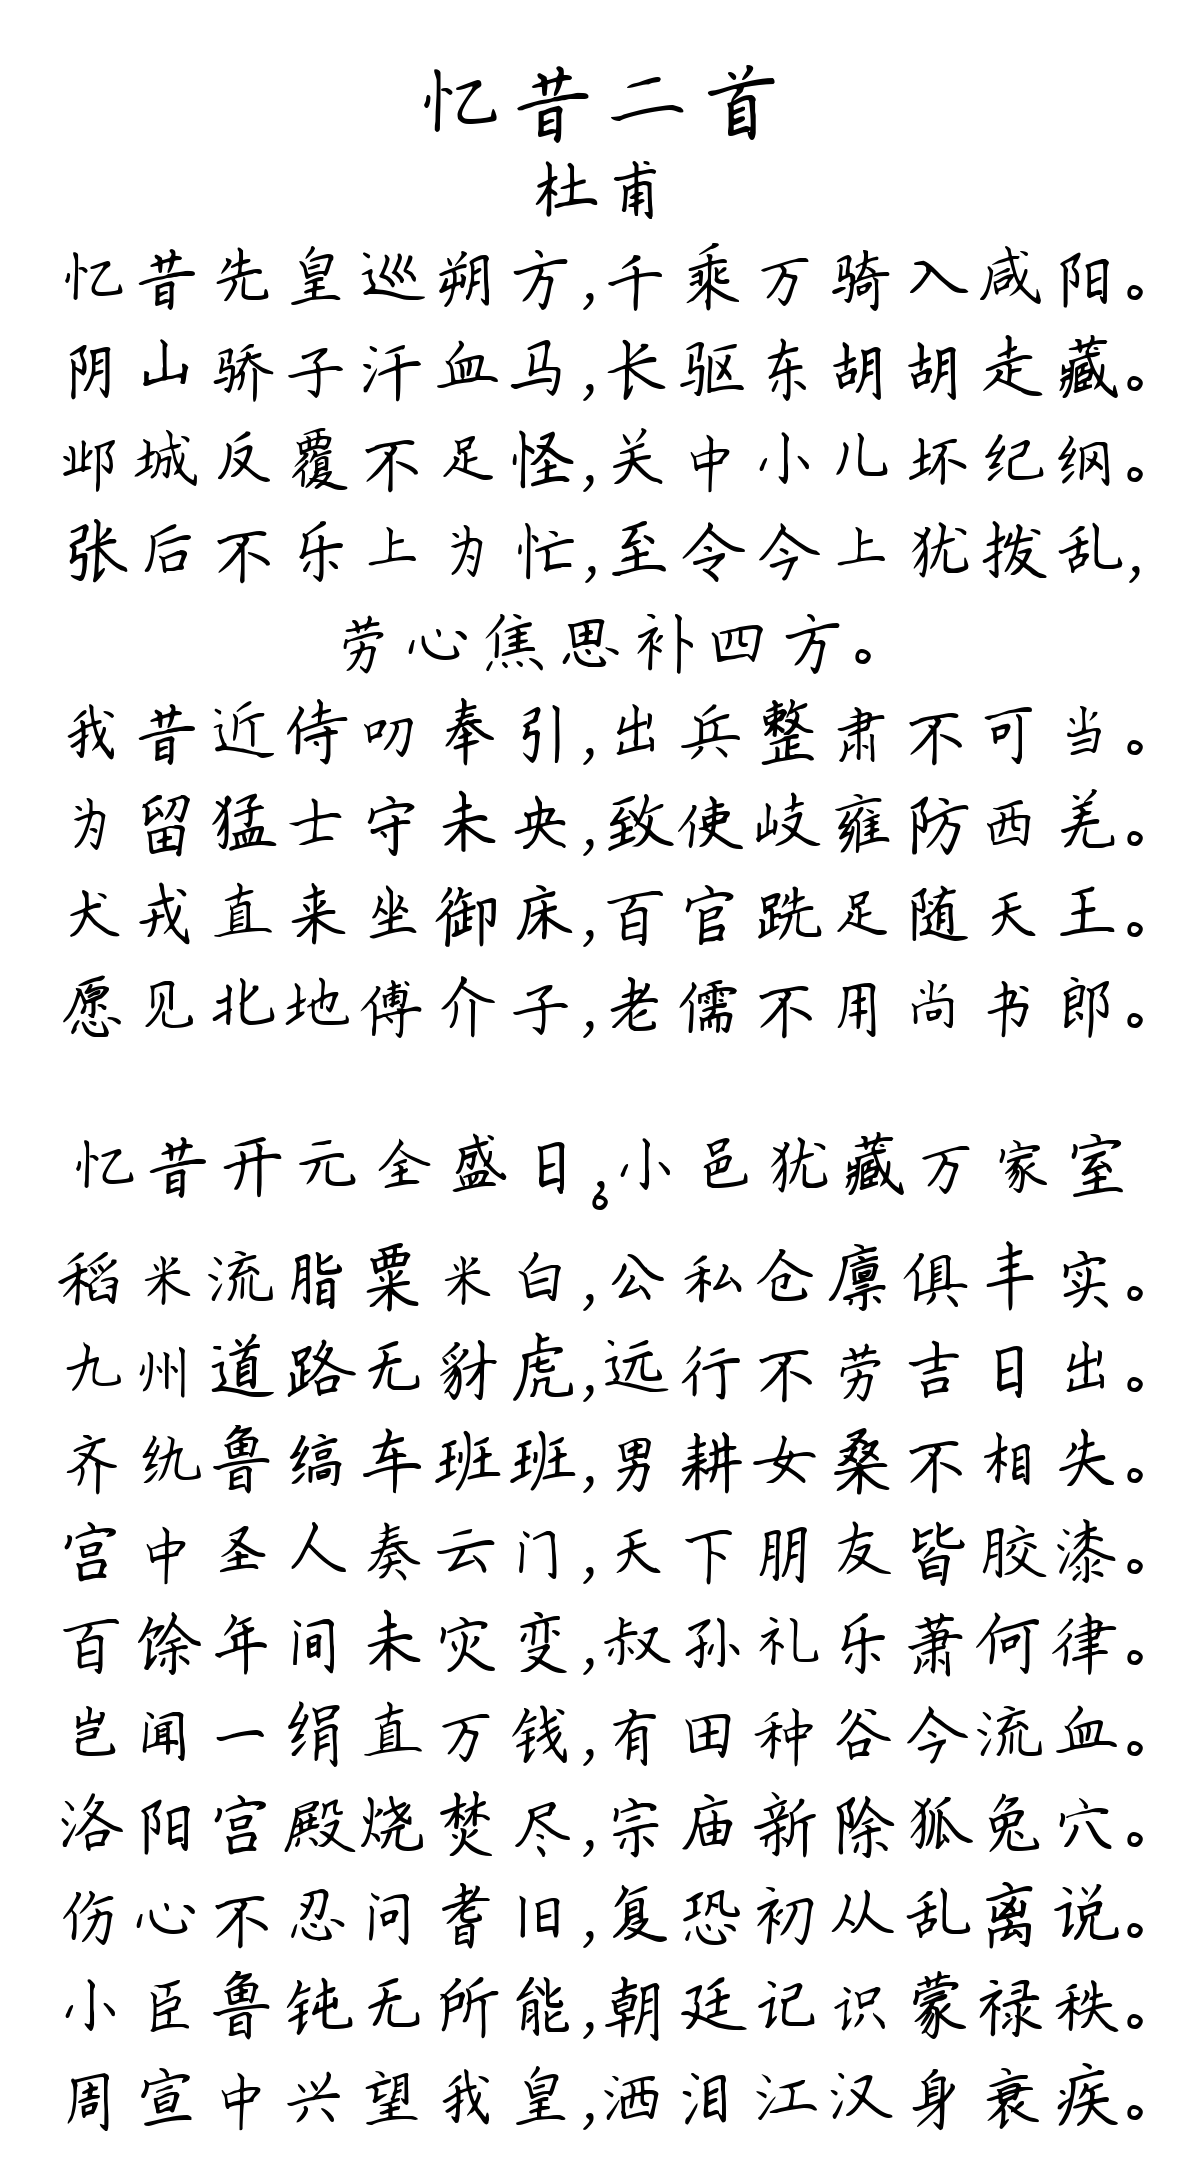 忆昔二首
杜甫
忆昔先皇巡朔方,千乘万骑入咸阳。
阴山骄子汗血马,长驱东胡胡走藏。
邺城反覆不足怪,关中小儿坏纪纲。
张后不乐上为忙,至令今上犹拨乱,
劳心焦思补四方。
我昔近侍叨奉引,出兵整肃不可当。
为留猛士守未央,致使岐雍防西羌。
犬戎直来坐御床,百官跣足随天王。
愿见北地傅介子,老儒不用尚书郎。
忆昔开元全盛日,小邑犹藏万家室。
稻米流脂粟米白,公私仓廪俱丰实。
九州道路无豺虎,远行不劳吉日出。
齐纨鲁缟车班班,男耕女桑不相失。
宫中圣人奏云门,天下朋友皆胶漆。
百馀年间未灾变,叔孙礼乐萧何律。
岂闻一绢直万钱,有田种谷今流血。
洛阳宫殿烧焚尽,宗庙新除狐兔穴。
伤心不忍问耆旧,复恐初从乱离说。
小臣鲁钝无所能,朝廷记识蒙禄秩。
周宣中兴望我皇,洒泪江汉身衰疾。